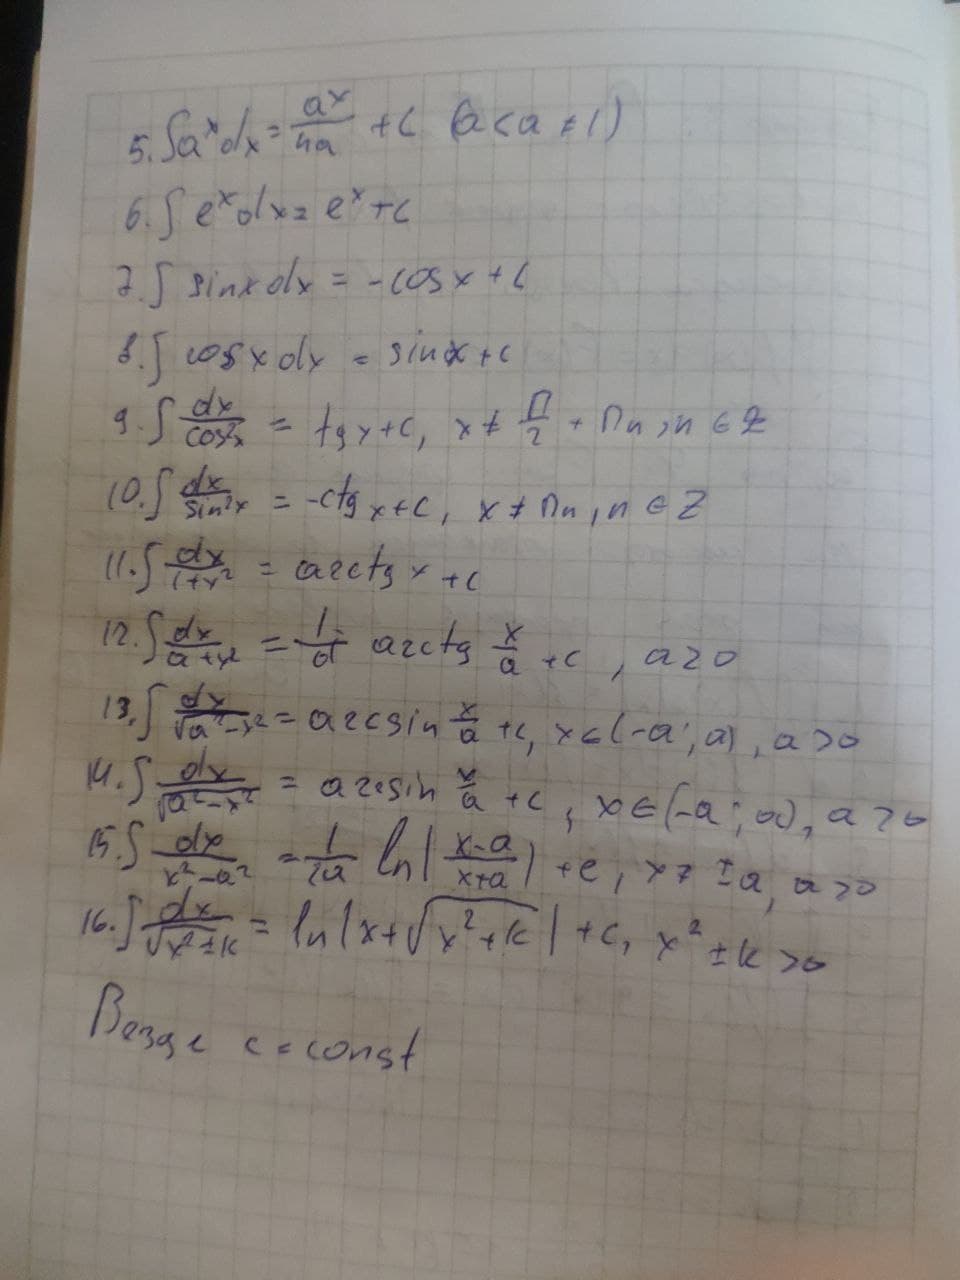 5. ∫a^x dx = a^x/ha + C (a < a ≠ 1)
6. ∫ e^x dx = e^x + C
7. ∫ sinx dx = -cosx + C
8. ∫ cosx dx = sinx + C
9. ∫ dx/cos²x = tgx + C, x ≠ П/2 + Пn, n ∈ Z
10. ∫ dx/sin²x = -ctgx + C, x ≠ Пn, n ∈ Z
11. ∫ dx/1+x² = arctgx + C
12. ∫ dx/a+x² = 1/a arctg x/a + C, a≥0
13. ∫ dx/√a²-x² = arcsin x/a + C, x ∈ (-a; a), a > 0
14. ∫ dx/√a²-x² = arcsin x/a + C, x ∈ (-a; ∞), a > 0
15. ∫ dx/x²-a² = 1/2a ln|x-a/x+a| + C, x ≠ ±a, a > 0
16. ∫ dx/√x²±k = ln|x+√x²+k| + C, x² ± k > 0
Везде c = const